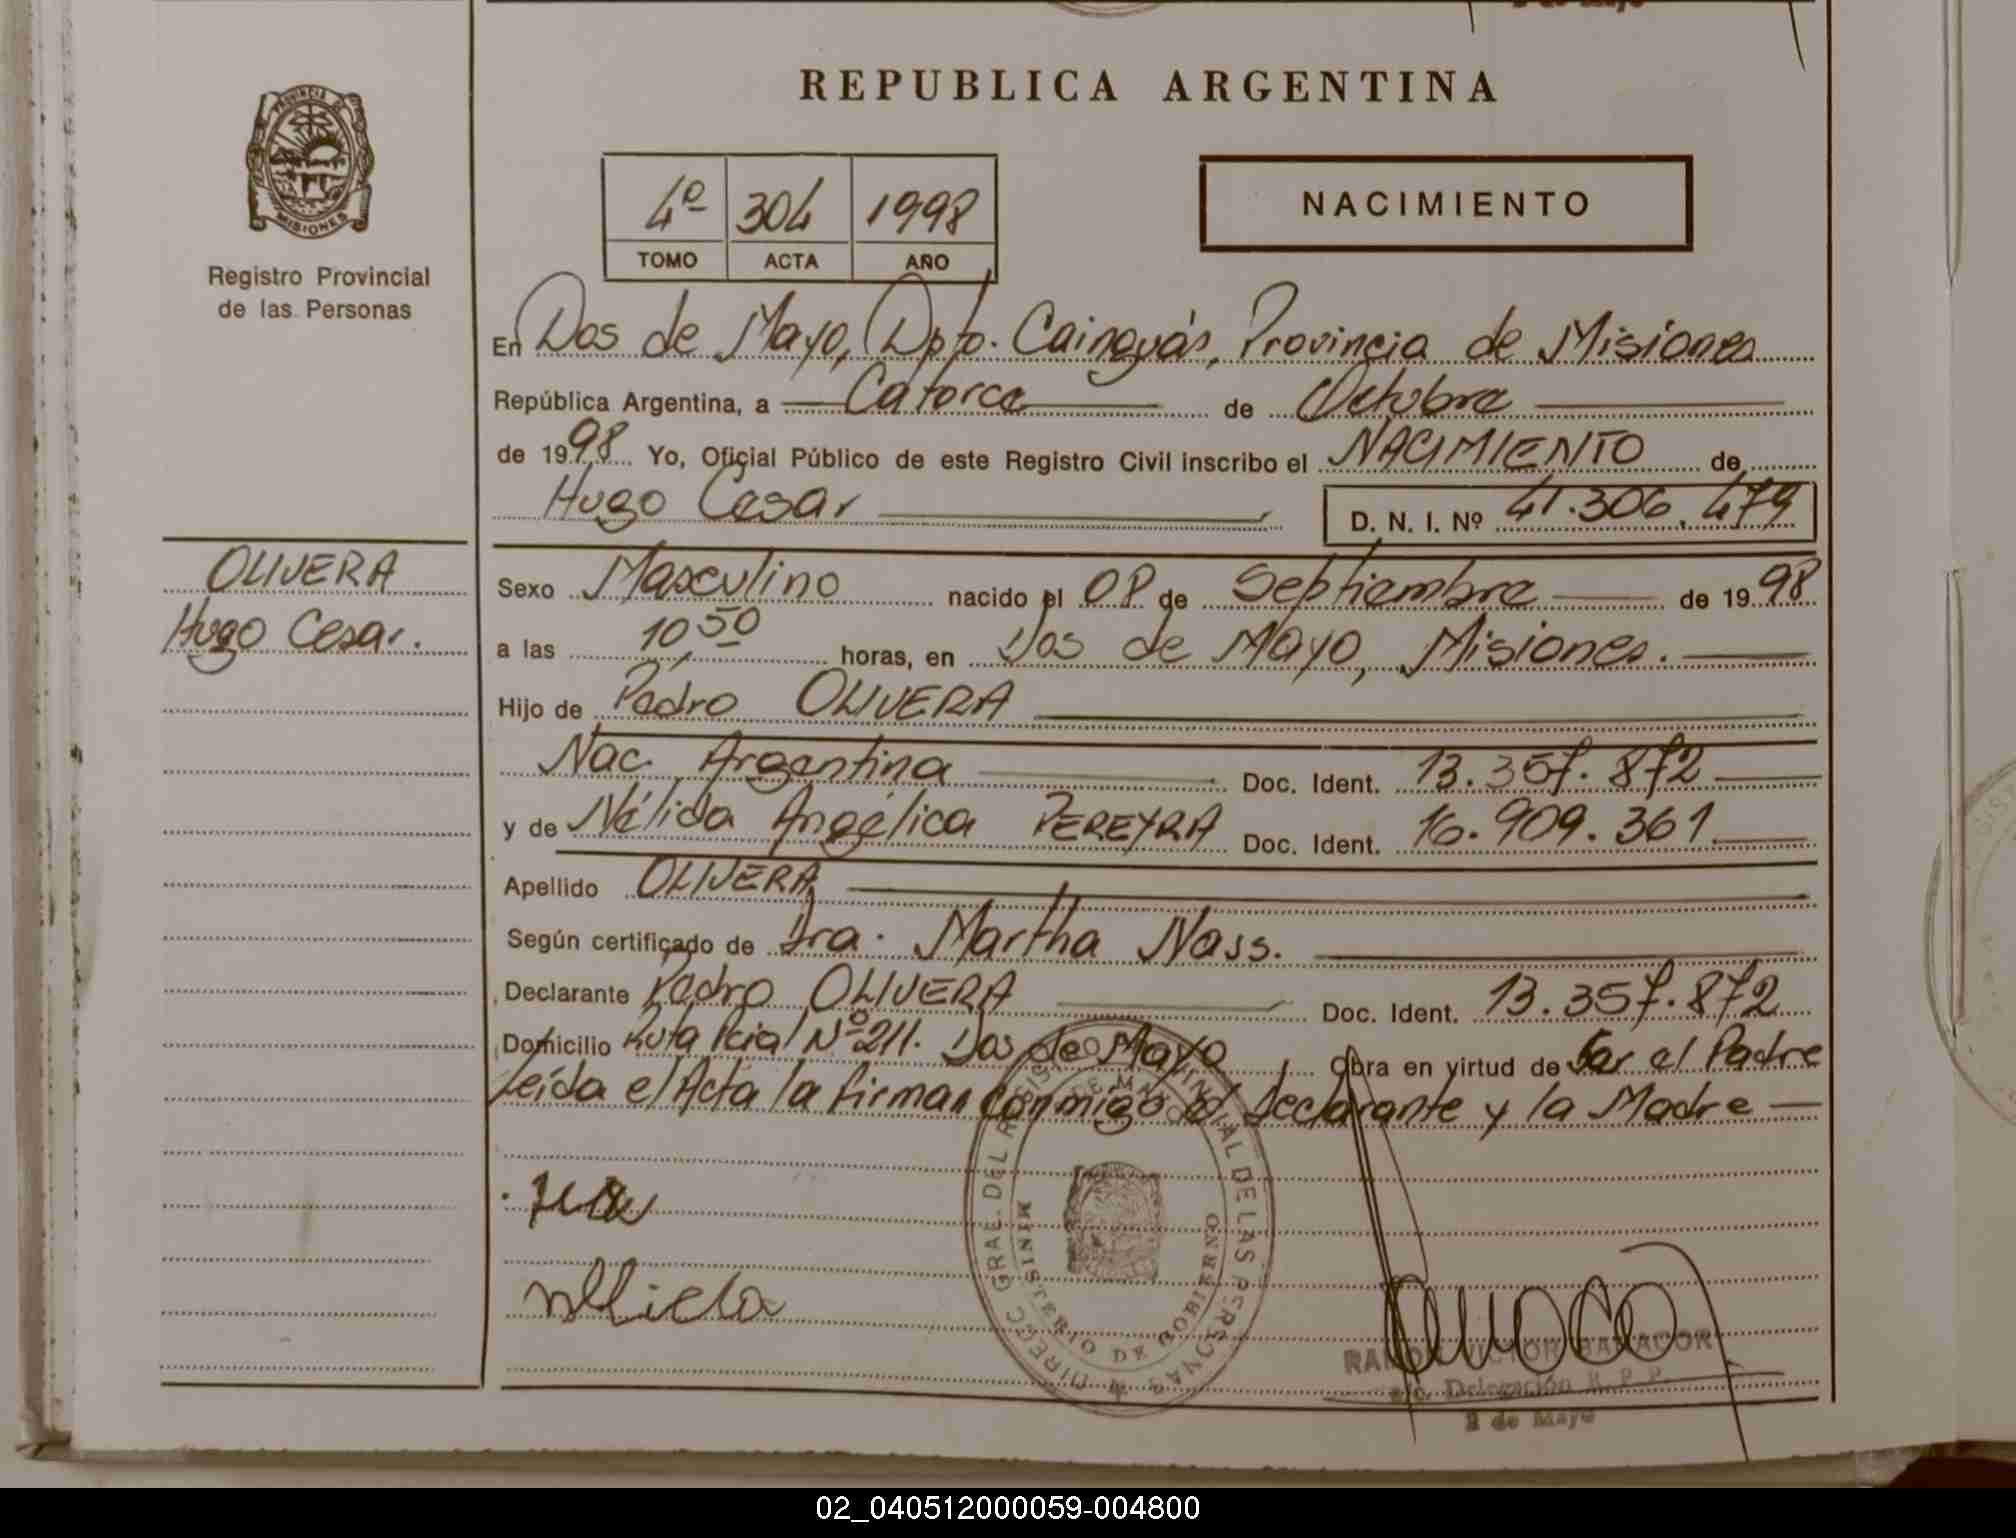 REPUBLICA ARGENTINA
PROVINCIA DE
MISIONES
Registro Provincial
de las Personas
4º 304 1998
TOMO ACTA AÑO
NACIMIENTO
En Dos de Mayo, Dpto. Cainguás, Provincia de Misiones
República Argentina, a Catorce de Octubre
de 1998 Yo, Oficial Público de este Registro Civil inscribo el NACIMIENTO de
Hugo Cesar D. N. I. Nº 41.306.479
OLIVERA
Hugo Cesar.
Sexo Masculino nacido el 08 de Septiembre de 1998
a las 10,50 horas, en Dos de Mayo, Misiones.
Hijo de Pedro OLIVERA
Nac. Argentina Doc. Ident. 13.357.872
y de Nélida Angélica PEREYRA Doc. Ident. 16.909.361
Apellido OLIVERA
Según certificado de Dra. Martha Nass.
Declarante Pedro OLIVERA Doc. Ident. 13.357.872
Domicilio Ruta Pcial Nº 211. Dos de Mayo Obra en virtud de Ser el Padre
Leída el Acta la firman conmigo el Declarante y la Madre
DIREC. GRAL. DEL REGISTRO PROVINCIAL DE LAS PERSONAS
MINISTERIO DE GOBIERNO
RAMON VICTOR
a/c. Delegación R. P. P.
2 de Mayo
02_040512000059-004800